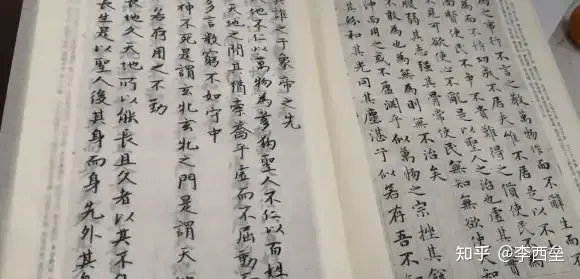 為之事行不言之教萬物作而不辭生而
為而不恃功成不居夫唯不居是以不
賢使民不爭不貴難得之貨使民
見可欲使心不亂是以聖人之治也虛其
腹弱其志強其骨常使民無知無欲使
不敢為也為無為則無不治矣
沖而用之或不盈淵乎似萬物之宗挫其
其紛和其光同其塵湛乎似若存吾不
其誰之子象帝之先
地不仁以萬物為芻狗聖人不仁以百姓
天地之間其猶橐籥乎虛而不屈動
多言數窮不如守中
神不死是謂玄牝玄牝之門是謂天
若存用之不勤
長地久天地所以能長且久者以其不
長生是以聖人後其身而身先外其
知乎 @李西垒